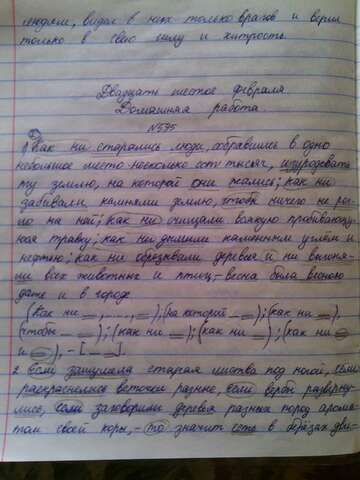 людям, видел в них только врагов и верил
только в свою силу и хитрость.
Двадцать шестое февраля
Домашняя работа
№575
1) Как ни старались люди, собравшись в одно
небольшое место несколько сот тысяч, изуродовать
ту землю, на которой они жались; как ни
забивали камнями землю, чтобы ничего не рос-
ло на ней; как ни счищали всякую пробивающу-
юся травку; как ни дымили каменным углём и
нефтью; как ни обрезывали деревья и ни выгоня-
ли всех животных и птиц, – весна была весною
даже и в городе
(Как ни =, ..., =); (на которой – =); (как ни =),
(чтобы – =); (как ни =); (как ни =); (как ни =
и =), – [– =].
2. Если зашуршала старая листва под ногой, если
раскраснелись веточки разные, если вербы разверну-
лись, если заговорили деревья разных пород арома-
том своей коры, – то значит есть в берёзах дви-